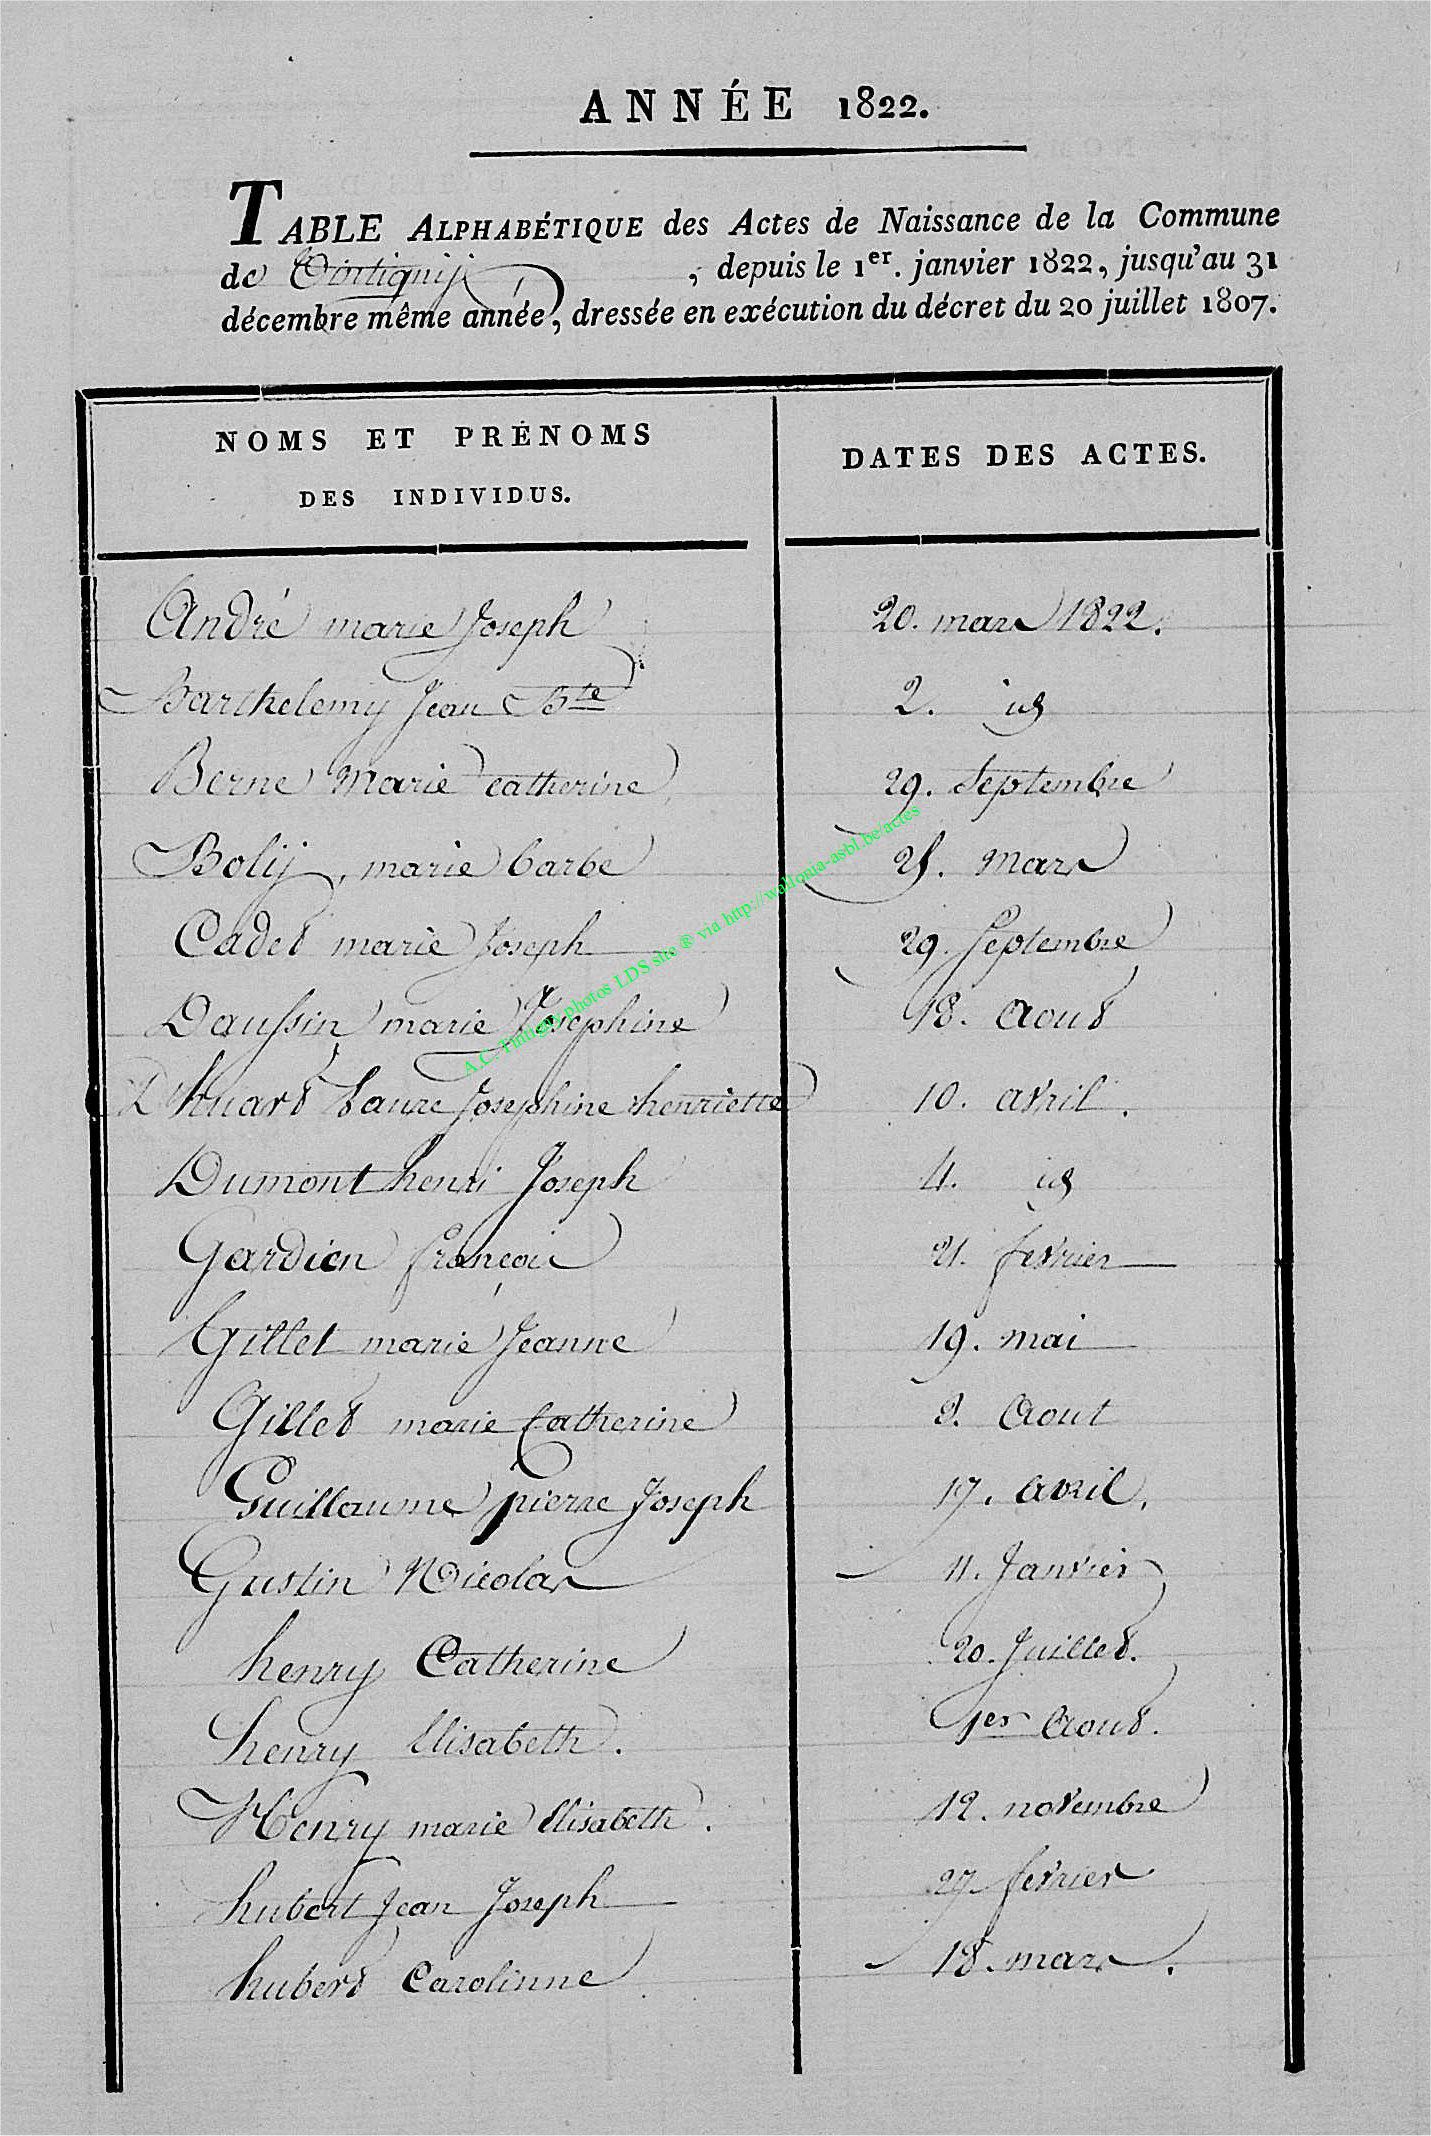 ANNÉE 1822.
TABLE ALPHABÉTIQUE des Actes de Naissance de la Commune
de Tintignij , depuis le 1er. janvier 1822, jusqu'au 31
décembre même année, dressée en exécution du décret du 20 juillet 1807.
NOMS ET PRÉNOMS DES INDIVIDUS. DATES DES ACTES.
André marie Joseph 20. mars 1822.
Barthelemy Jean Bte 2. id
Berne Marie catherine 29. Septembre
Bolij, marie barbe mars
Cadet marie Joseph 29. Septembre
Daussin marie Josephine 18. Aout
D'huart Laure Josephine henriette 10. avril.
Dumont henri Joseph 4. id
Gardien françois 21. fevrier
Gillet marie Jeanne 19. mai
Gillet marie Catherine Aout
Guillaume pierre Joseph 17. avril.
Gustin Nicolas 11. Janvier
henry Catherine 20. Juillet.
henry Elisabeth. 1er Aout.
Henry marie Elisabeth. 12. novembre
hubert Jean Joseph 27. fevrier
hubert Carolinne 18. mars.
A.C. Tintigny photos LDS site ® via http://wallonia-asbl.be/actes